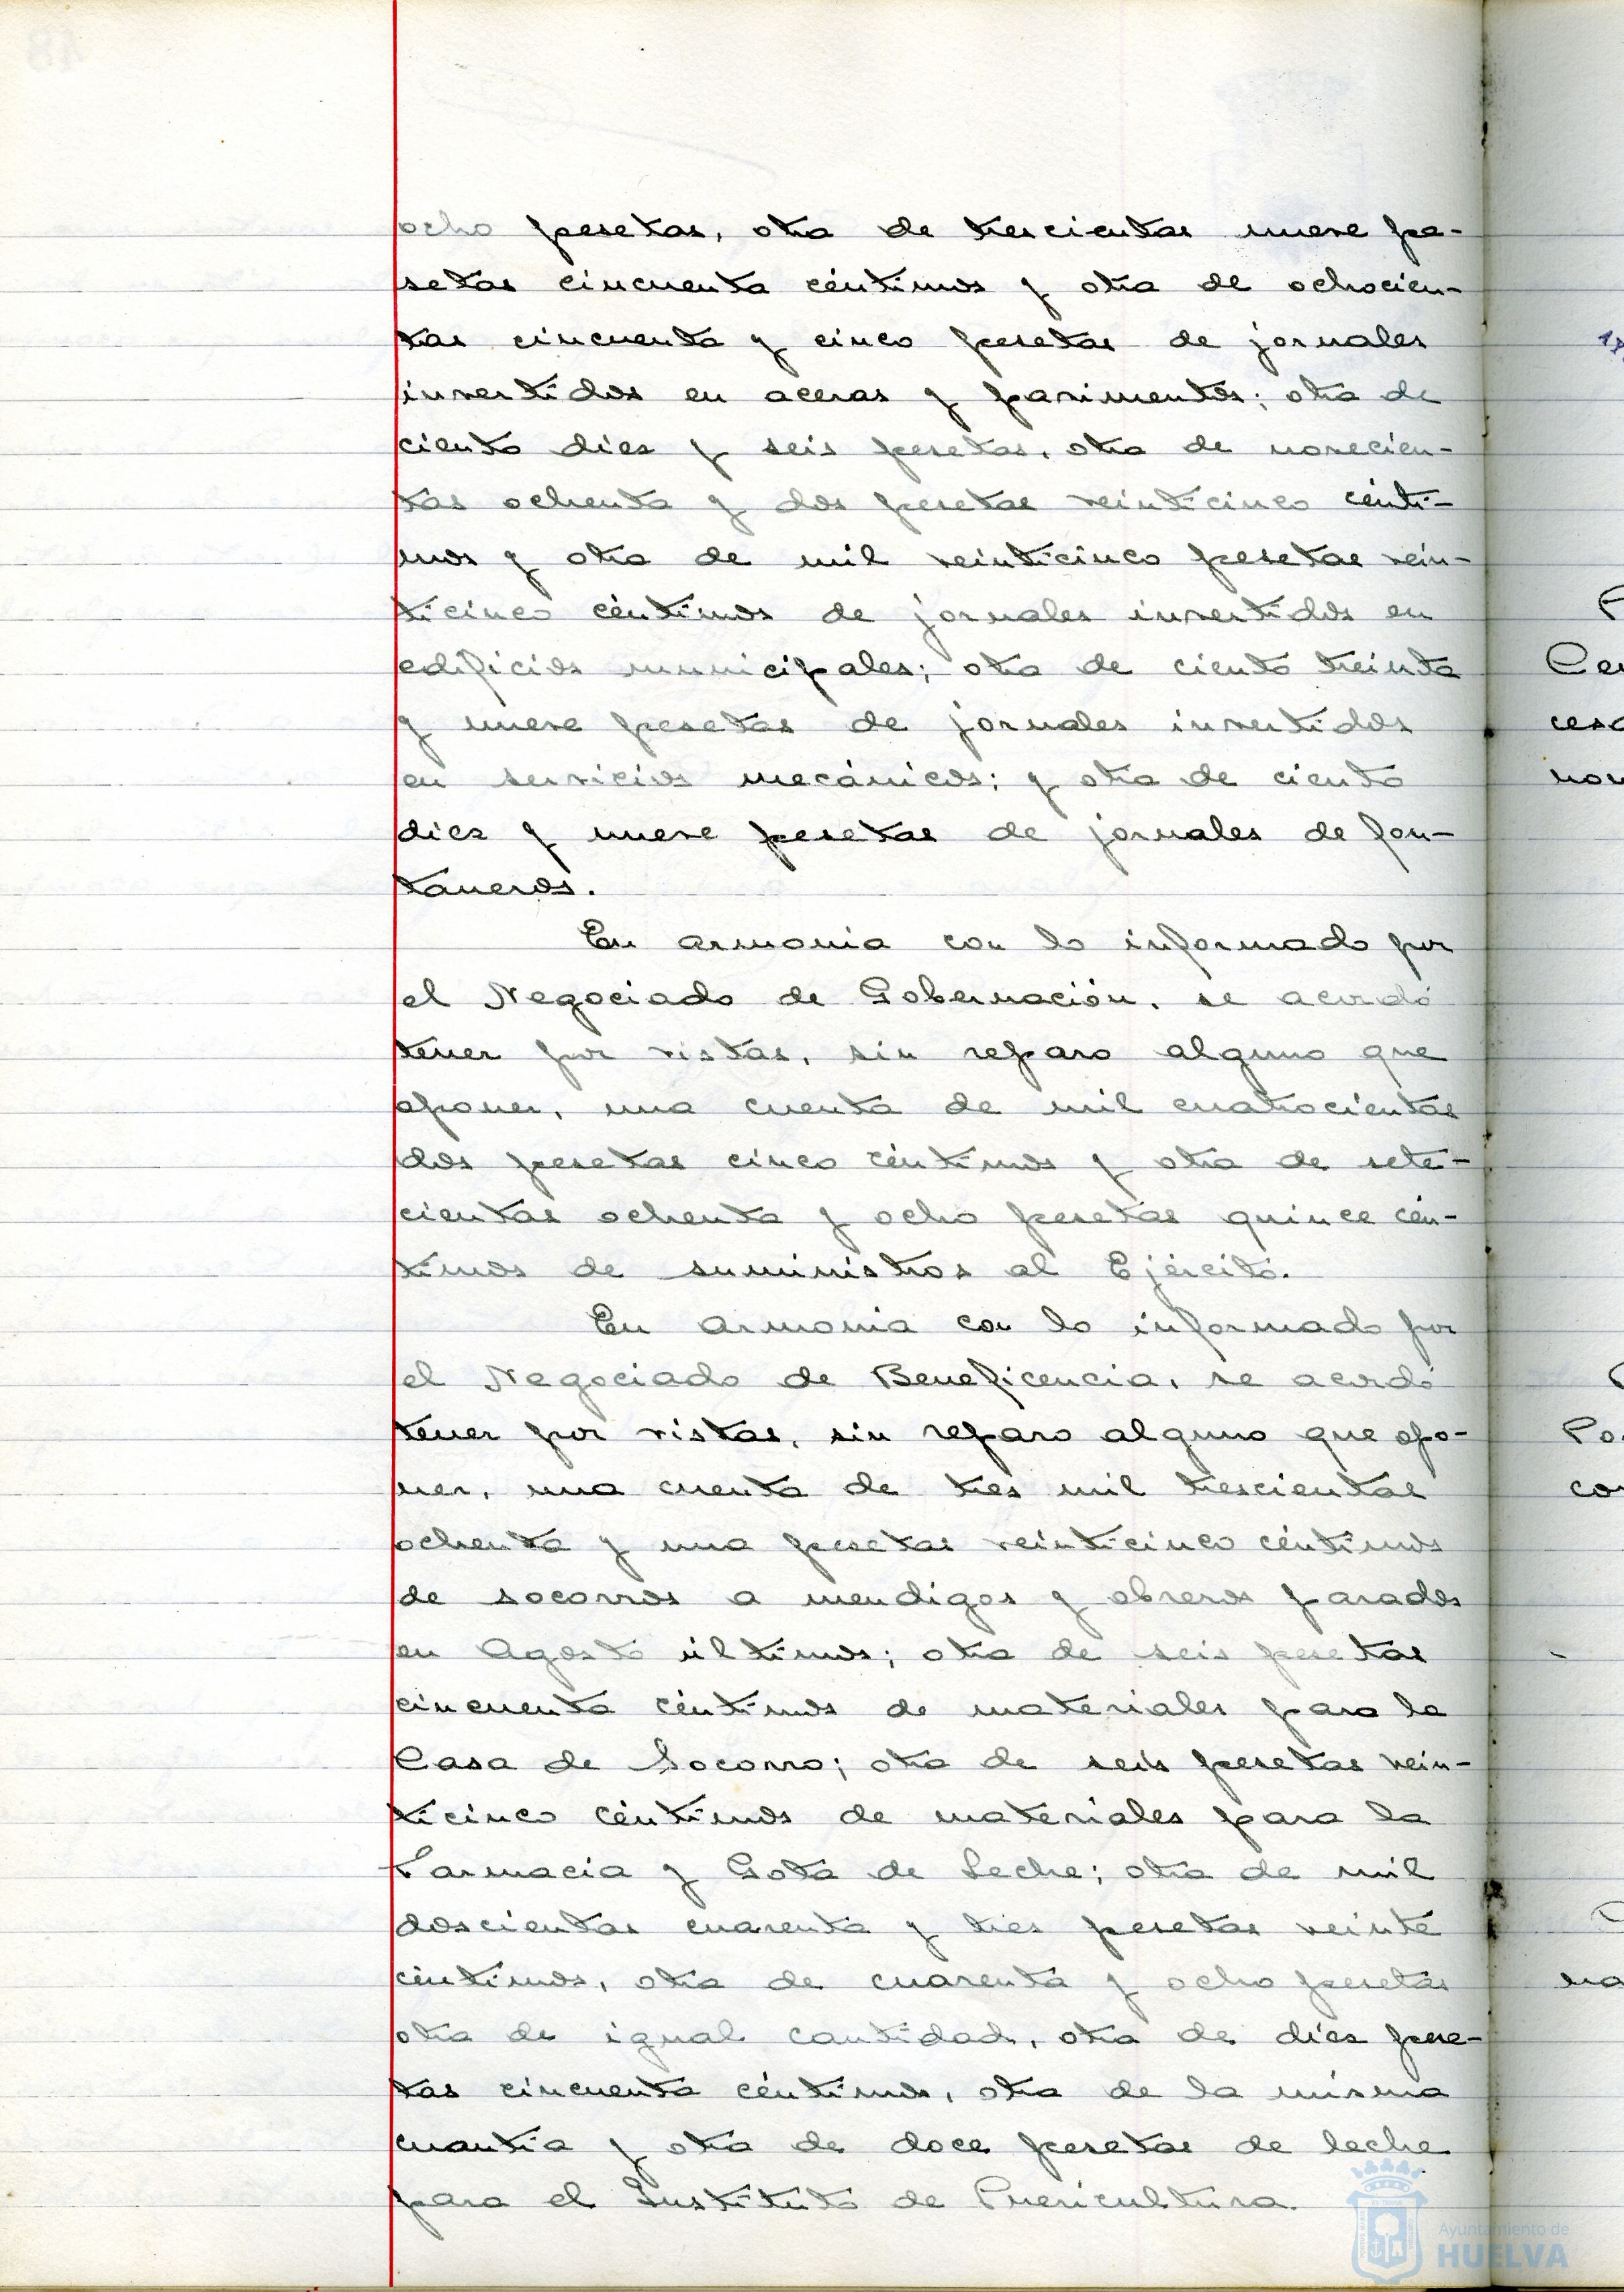 ocho pesetas, otra de trescientas nueve pe-
setas cincuenta céntimos y otra de ochocien-
tas cincuenta y cinco pesetas de jornales
invertidos en aceras y pavimentos; otra de
ciento diez y seis pesetas, otra de novecien-
tas ochenta y dos pesetas veinticinco cénti-
mos y otra de mil veinticinco pesetas vein-
ticinco céntimos de jornales invertidos en
edificios municipales; otra de ciento treinta
y nueve pesetas de jornales invertidos
en servicios mecánicos; y otra de ciento
diez y nueve pesetas de jornales de fon-
taneros.
En armonia con lo informado por
el Negociado de Gobernación, se acordó
tener por vistas, sin reparo alguno que
oponer, una cuenta de mil cuatrocientas
dos pesetas cinco céntimos y otra de sete-
cientas ochenta y ocho pesetas quince cén-
timos de suministros al Ejército.
En armonia con lo informado por
el Negociado de Beneficencia, se acordó
tener por vistas, sin reparo alguno que opo-
ner, una cuenta de tres mil trescientas
ochenta y una pesetas veinticinco céntimos
de socorros a mendigos y obreros parados
en Agosto último; otra de seis pesetas
cincuenta céntimos de materiales para la
Casa de Socorro; otra de seis pesetas vein-
ticinco céntimos de materiales para la
Farmacia y Gota de Leche; otra de mil
doscientas cuarenta y tres pesetas veinte
céntimos, otra de cuarenta y ocho pesetas
otra de igual cantidad, otra de diez pese-
tas cincuenta céntimos, otra de la misma
cuantía y otra de doce pesetas de leche
para el Instituto de Puericultura.
Ayuntamiento de
HUELVA